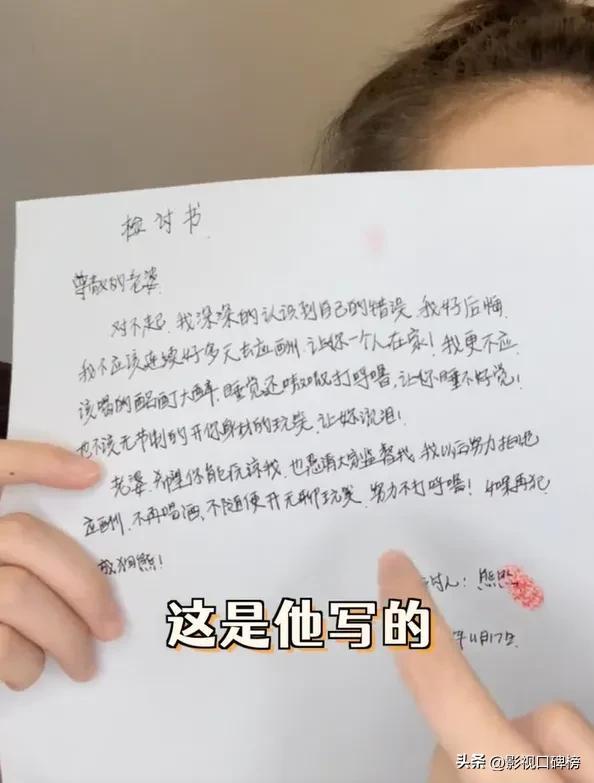 检讨书
尊敬的老婆
对不起.我深深的认识到自己的错误.我好后悔.
我不应该连续好多天去应酬.让你一个人在家!我更不应
该喝的酩酊大醉.睡觉还嗷嗷打呼噜,让你睡不好觉!
也不该无节制的开你身材的玩笑.让好流泪!
老婆.希望你能原谅我.也恳请大家监督我.我以后努力拒绝
应酬.不再喝酒、不随便开无聊玩笑.努力不打呼噜!如果再犯
狗熊!
讨人:熊
年11月17日
这是他写的
头条 @影视口碑榜